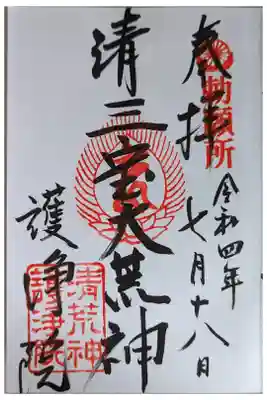 勅願所
奉拝
令和四年
七月十八日
清三宝大荒神
護浄院
清荒神
護浄院